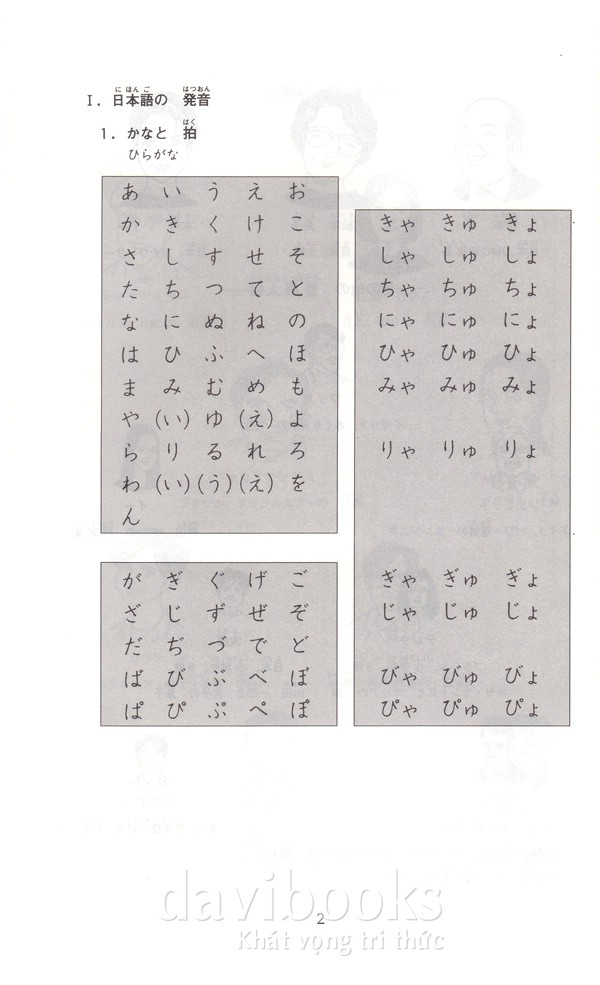 にほんご　はつおん
I. 日本語の　発音
はく
1. かなと　拍
ひらがな
あ い う え お
か き く け こ
さ し す せ そ
た ち つ て と
な に ぬ ね の
は ひ ふ へ ほ
ま み む め も
や (い) ゆ (え) よ
ら り る れ ろ
わ (い) (う) (え) を
ん
きゃ きゅ きょ
しゃ しゅ しょ
ちゃ ちゅ ちょ
にゃ にゅ にょ
ひゃ ひゅ ひょ
みゃ みゅ みょ
りゃ りゅ りょ
が ぎ ぐ げ ご
ざ じ ず ぜ ぞ
だ ぢ づ で ど
ば び ぶ べ ぼ
ぱ ぴ ぷ ぺ ぽ
ぎゃ ぎゅ ぎょ
じゃ じゅ じょ
びゃ びゅ びょ
ぴゃ ぴゅ ぴょ
davibooks
2
Khát vọng tri thức